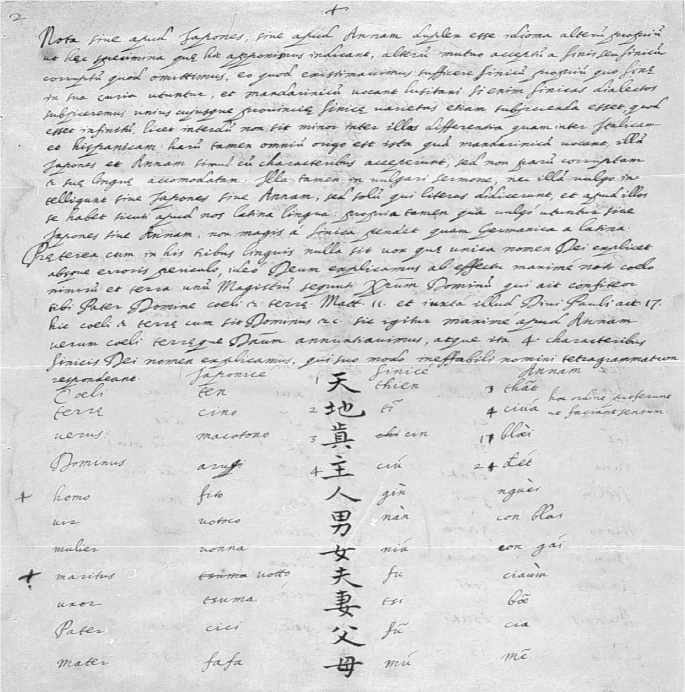 2
Nota siue apud Japones, siue apud Annam duplex esse idioma alterũ propriũ
ut hęc specimina quę hic apponimus indicant, alterũ mutuo acceptũ a Sinis seu sinicũ
corruptũ quod omittimus, eo quod existimauimus sufficere sinicũ propriũ quo Sinę
in sua curia utuntur, et mandarinicũ uocant lusitani si enim sinicas dialectos
subijceremus unius cuiusque prouincię sinicę uarietas etiam subijcienda esset, quod
esset infinitũ, licet interdũ non sit minor inter illas differentia quam inter Italicam
et hispanicam: harũ tamen omniũ origo est ista quã mandarinicã uocant, illã
Japones et Annam simul cũ characteribus acceperunt, sed non parũ corruptam
& suę linguę accomodatam. Illa tamen in uulgari sermone, nec illã uulgo in
telligunt siue Japones siue Annam, sed solũ qui literas didicerunt, et apud illos
se habet sicuti apud nos latina lingua: propria tamen qua uulgò utuntur siue
Japones siue Annam, non magis à sinica pendet quam Germanica a latina.
Pręterea cum in his tribus linguis nulla sit uox quę unica nomen Dei explicet
absque erroris periculo, ideo Deum explicamus ab effectu maxime noto coelo
nimirũ et terra unũ Magistrũ sequuti Xp̃um Dominũ qui ait confiteor
tibi Pater Domine coeli & terrę. Matt. 11. et iuxtà illud Diui Pauli act 17.
hic coeli & terrę cum sit Dominus &c. sic igitur maximè apud Annam
uerum coeli terręque Dnum annuntiauimus, atque ita 4 characteribus
sinicis Dei nomen explicamus, qui suo modo ineffabili nomini tetragrammaton
respondeant. Japonicè Sinicè Annam
Coeli ten 1 天 thien 3 thãt
terrę cino 2 地 tĩ 4 ciúa hoc ordine proferunt ut faciant sensum
uerus macotono 3 眞 chi cin 1 blài
Dominus aruji 4 主 ciú 2 đét
homo fito 人 gin ngùei
uir uotoco 男 nàn con blai
mulier uonna 女 niú con gái
maritus tsuma uotto 夫 fu ciaũm
uxor tsuma 妻 tsi bõ
Pater cici 父 fũ cia
mater fafa 母 mú mẽ